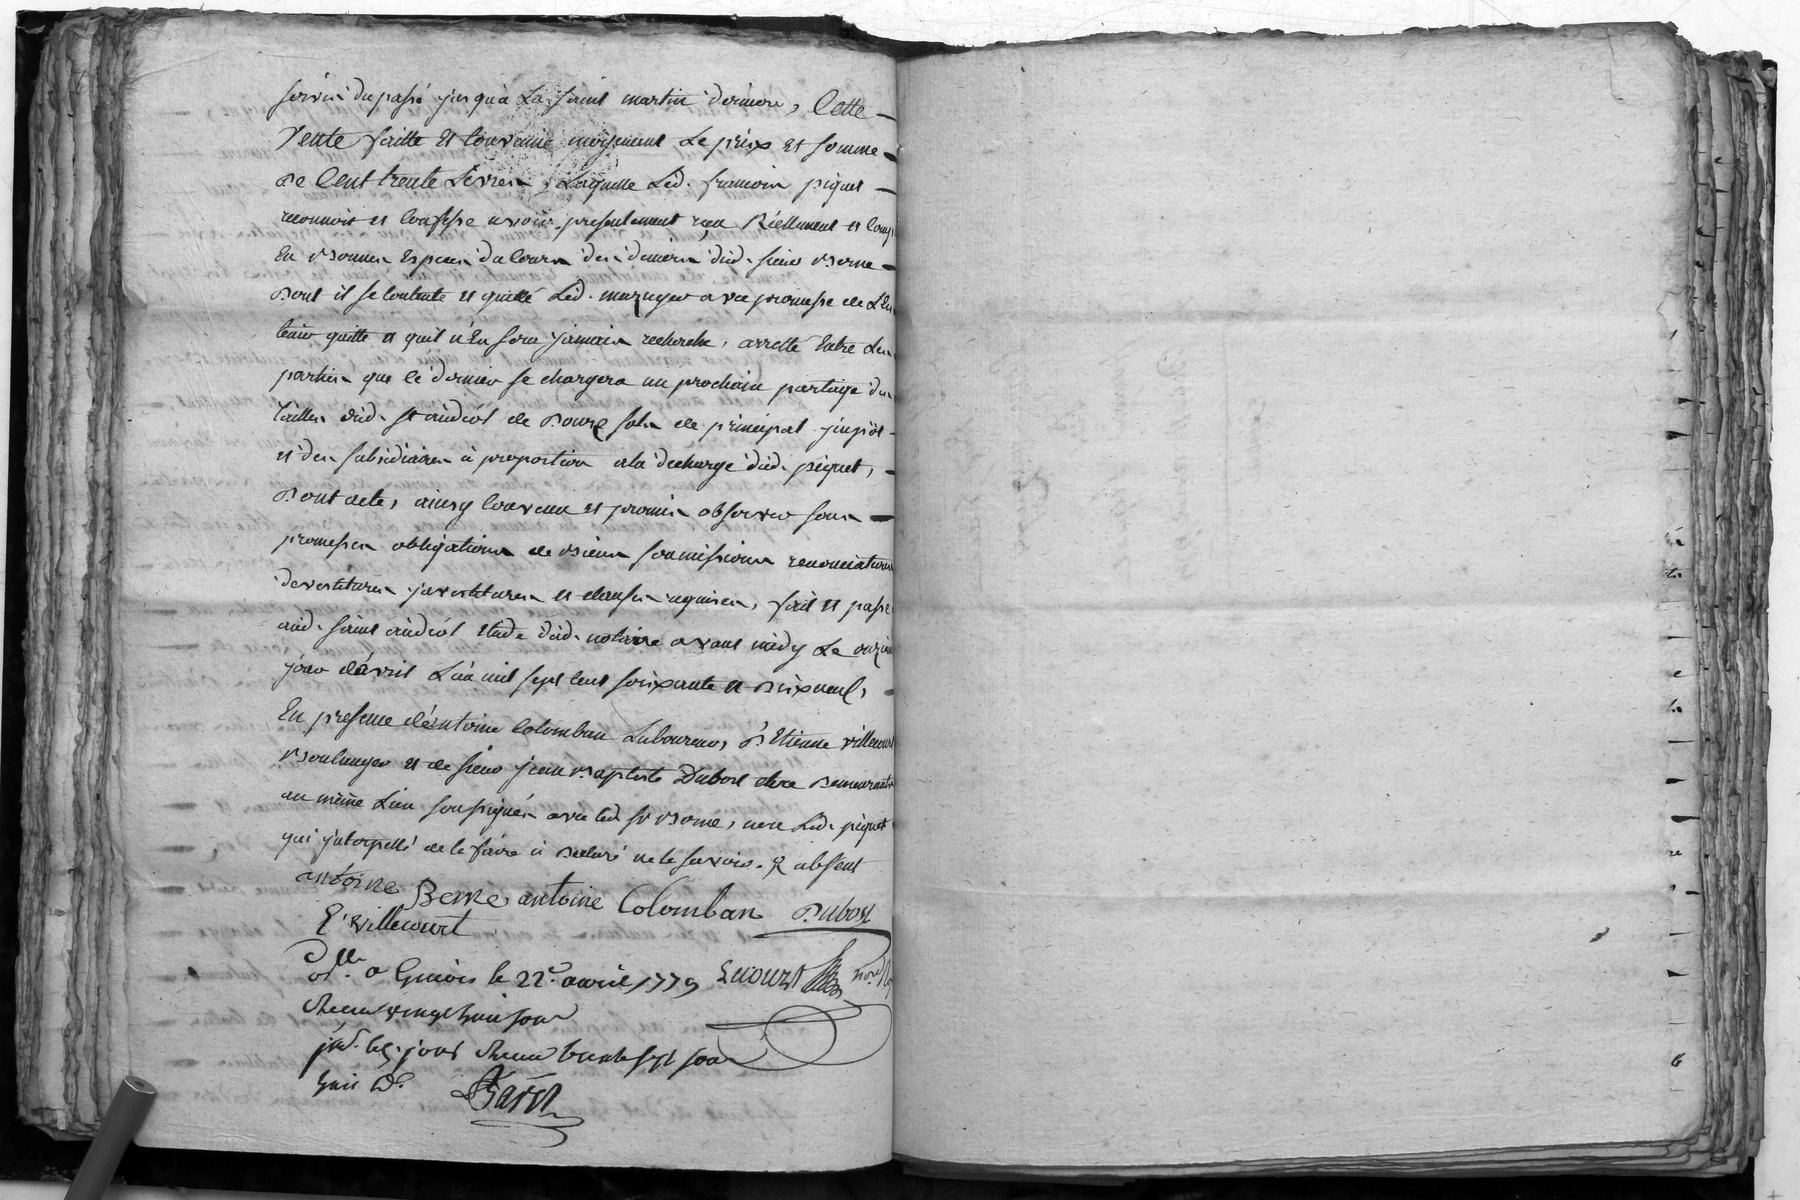 servis du passé jusqu'a La saint martin derniere, Cette
Vente faitte et Convenue moyenant Le prix et somme
De Cent trente Livres, Laquelle Led. francois piquet
reconnoit et Confesse avoir presentement reçu Réellement et Comp.
En Bonnes Especes du Cours des deniers dud. sieur Berne
Dont il se Contente et quitté Led. acquereur avec promesse de L'En
tenir quitte et quil n'En sera jamais recherché, arretté Entre Les
parties que le dernier se chargera au prochain partage des
tailles dud. st andéol de Douze sols de principal jmpôt
et des subsidiaires à proportion a la decharge dud. piquet,
Dont acte, ainsy Convenu et promis observer sous
promesses obligations de Biens soumissions renonciations
devestitures jnvestitures et clauses requises, fait et passé
aud. saint andéol etude dud. notaire avant midy Le onzieme
jour d'avril L'an mil sept Cent soixante et Dixneuf,
En presence d'antoine Colomban Laboureur, d'Etienne Villecourt
Boulanger et de sieur jean Baptiste Dubost clerc Demeurants
au même Lieu soussignés avec led. sr Berne, non Led. piquet
qui jnterpellé de le faire à Declaré ne le savoir. absent
antoine Berne antoine Colomban Dubost
E. Villecourt
Con.lle a Givors le 22e. avril 1779 Lecourt Nore. R.
Receu vingt huit sols
jns. les. jour Receu trente sept sols
huit d.